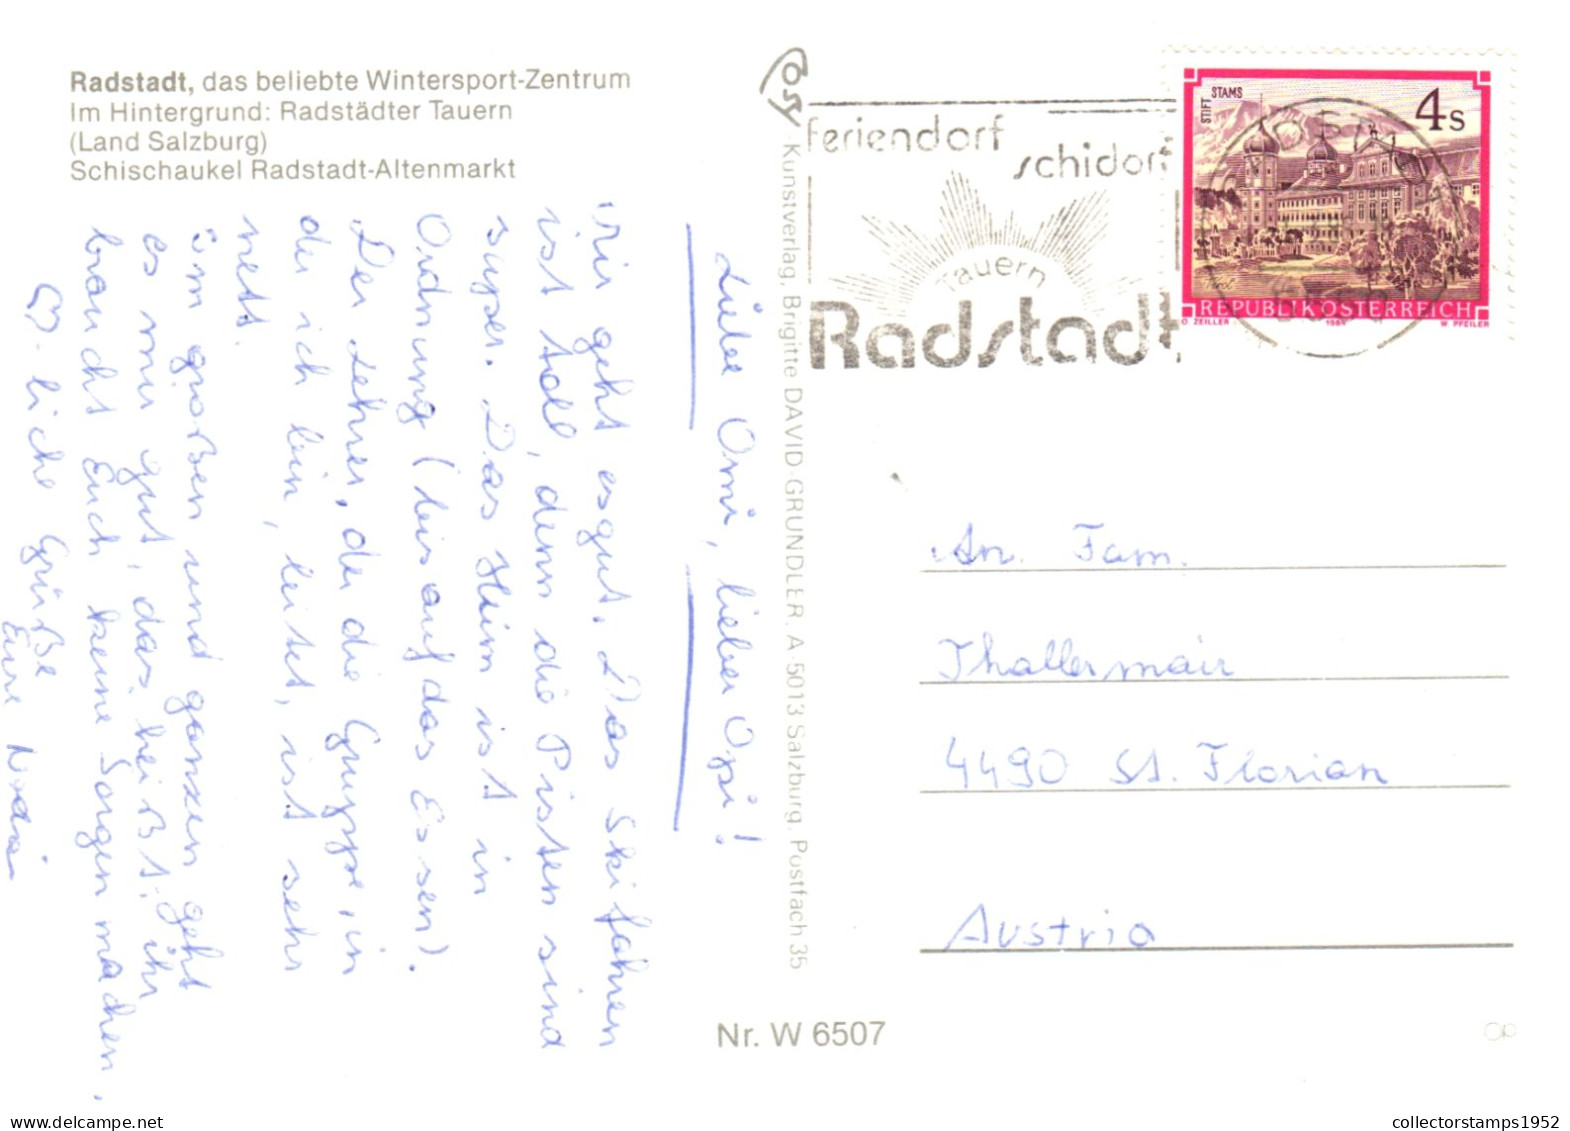 Radstadt, das beliebte Wintersport-Zentrum
Im Hintergrund: Radstädter Tauern
(Land Salzburg)
Schischaukel Radstadt-Altenmarkt
Liebe Omi, lieber Opi!
Mir geht es gut. Das Skifahren
ist toll, denn die Pisten sind
super. Das Heim ist in
Ordnung (bis auf das Essen).
Der Lehrer, der die Gruppe, in
der ich bin, leitet, ist sehr
nett.
Im großen und ganzen geht
es mir gut, das heißt, ihr
braucht Euch keine Sorgen machen.
♡-liche Grüße
Eure
Kunstverlag, Brigitte DAVID-GRUNDLER, A-5013 Salzburg, Postfach 35
Feriendorf
schidorf
Tauern
Radstadt
STIFT STAMS
4s
Tirol
REPUBLIK ÖSTERREICH
O. ZEILLER
W. PFEILER
An Fam.
Thallermair
4490 St. Florian
Austria
Nr. W 6507
collectorstamps1952